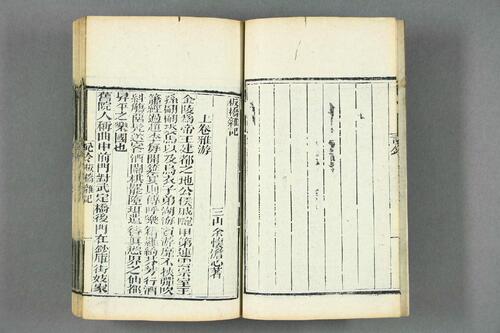 板橋雜記
三山余懷澹心著
上卷雅游
金陵爲帝王建都之地公侯戚畹甲第連雲宗室王
孫翩翩裘馬以及烏衣子弟湖海賓游靡不挾彈吹
簫經過趙李每開筵宴則傳呼樂籍羅綺芬芳行酒
糾觴留髠送客酒闌棋罷墮珥遺簪真慾界之仙都
昇平之樂國也
舊院人稱曲中前門對武定橋後門在鈔庫街妓家
說鈴 板橋雜記